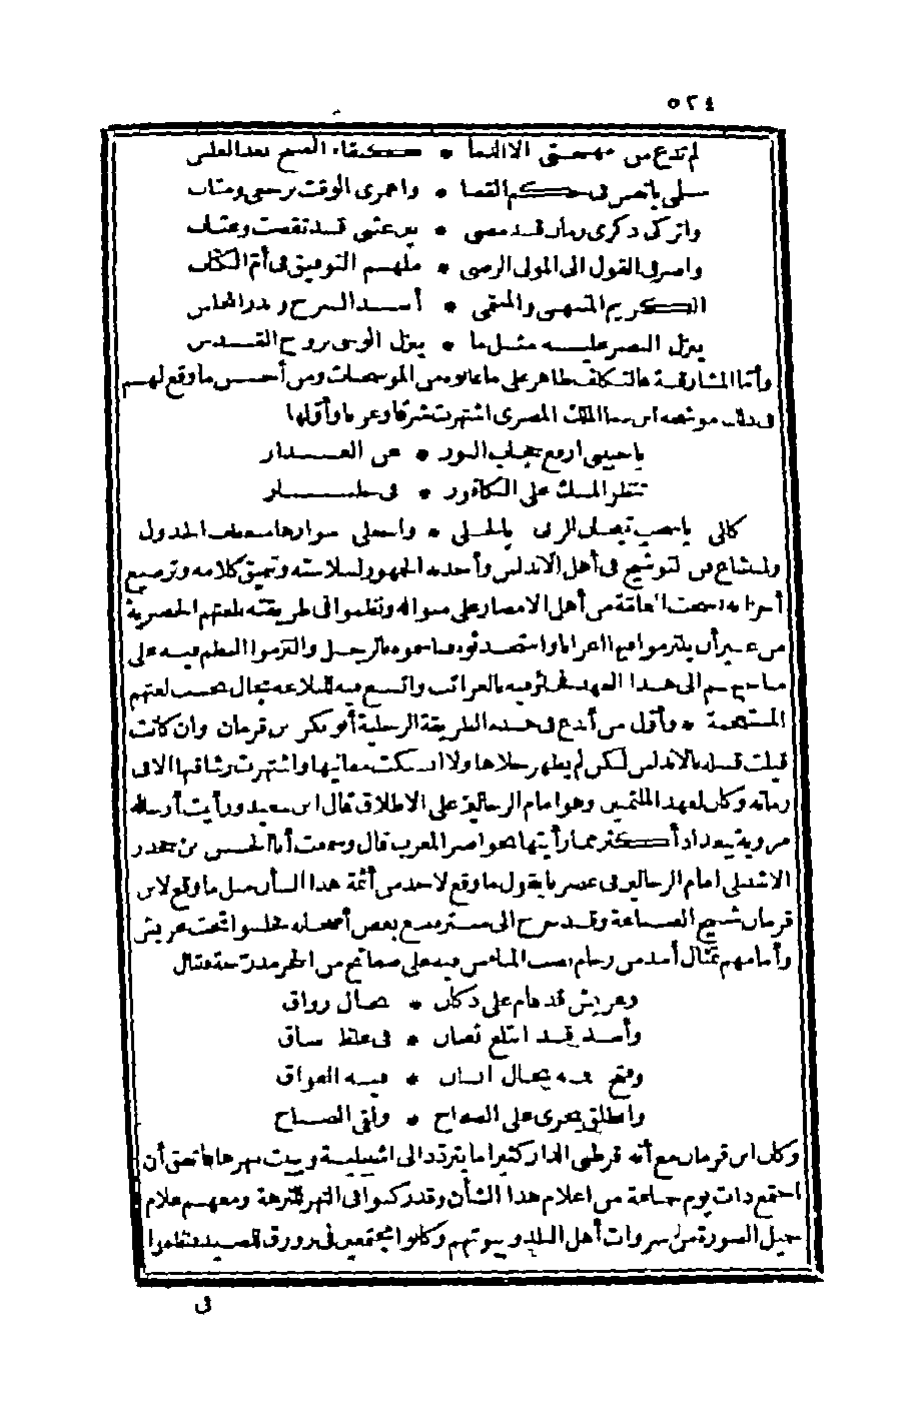 ٥٢٤
لم تدع من مهجتى الا الذما * كبقاء الصبح بعد الغلس
سلمى يانفس فى حكم القضا * واعمرى الوقت برجعى ومتاب
واتركى ذكرى زمان قد مضى * بين عتبى قد تقضت وعتاب
واصرفى القول الى المولى الرضى * ملهم التوفيق فى أم الكتاب
الكريم المنتهى والمنتمى * أسد السرح وبدر المجلس
ينزل النصر عليه مثل ما * ينزل الوحى بروح القدس
وأما المشارقة فالتكلف ظاهر على ما عانوه من الموشحات ومن أحسن ما وقع لهم
فى ذلك موشحة ابن سنا الملك المصرى اشتهرت شرقا وغربا وأولها
يا حبيبى ارفع حجاب النور * عن العذار
تنظر المسك على الكافور * فى جلنار
كللى ياسحب تيجان الربى بالحلى * واجعلى سوارها منعطف الجدول
ولما شاع فن التوشيح فى أهل الاندلس وأخذ به الجمهور لسلاسته وتنميق كلامه وترصيع
أجزائه نسجت العامة من أهل الامصار على منواله ونظموا فى طريقته بلغتهم الحضرية
من غير أن يلتزموا فيها اعرابا واستحدثوه فنا سموه بالزجل والتزموا النظم فيه على
مناحيهم الى هذا العهد فجاؤا فيه بالغرائب واتسع فيه للبلاغة مجال بحسب لغتهم
المستعجمة * وأول من أبدع فى هذه الطريقة الزجلية أبو بكر بن قزمان وان كانت
قيلت قبله بالاندلس لكن لم يظهر حلاها ولا انسكبت معانيها واشتهرت رشاقتها الا فى
زمانه وكان لعهد الملثمين وهو امام الزجالين على الاطلاق قال ابن سعيد ورأيت أزجاله
مروية ببغداد أكثر مما رأيتها بحواضر المغرب قال وسمعت أبا الحسن بن جحدر
الاشبيلى امام الزجالين فى عصرنا يقول ما وقع لاحد من أئمة هذا الشأن مثل ما وقع لابن
قزمان شيخ الصناعة وقد خرج الى منتزه مع بعض أصحابه فجلسوا تحت عريش
وأمامهم تمثال أسد من رخام يصب الماء من فيه على صفائح من الحجر مدرجة فقال
وعريش قد قام على دكان * بحال رواق
وأسد قد ابتلع ثعبان * فى غلظ ساق
وفتح فمه بحال انسان * فيه الفواق
وانطلق يجرى على الصفاح * ولقى الصباح
وكان ابن قزمان مع أنه قرطبى الدار كثيرا ما يتردد الى اشبيلية ويبيت بنهرها فاتفق أن
اجتمع ذات يوم جماعة من اعلام هذا الشأن وقد ركبوا فى النهر للنزهة ومعهم غلام
جميل الصورة من سروات أهل البلد وبيوتهم وكانوا مجتمعين فى زورق للصيد فنظموا
فى